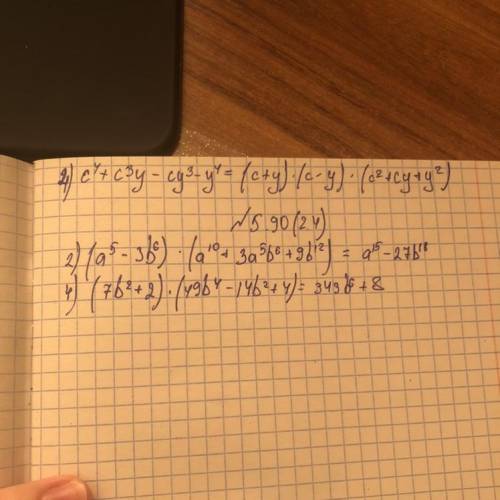 4) c⁴ + c³y - cy³ - y⁴ = (c+y)·(c-y)·(c²+cy+y²)
№5.90(2.4)
2) (a⁵ - 3b⁶)·(a¹⁰ + 3a⁵b⁶ + 9b¹²) = a¹⁵ - 27b¹⁸
4) (7b² + 2)·(49b⁴ - 14b² + 4) = 343b⁶ + 8